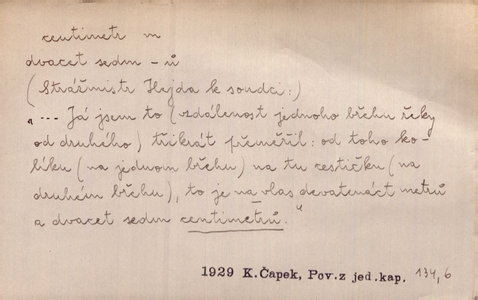 centimetr m
dvacet sedm -ů
(Strážmistr Hejda k soudci:)
"... Já jsem to (vzdálenost jednoho břehu řeky
od druhého) třikrát přeměřil: od toho ko-
líku (na jednom břehu) na tu cestičku (na
druhém břehu), to je na vlas devatenáct metrů
a dvacet sedm centimetrů."
1929 K.Čapek, Pov.z jed.kap. 134,6